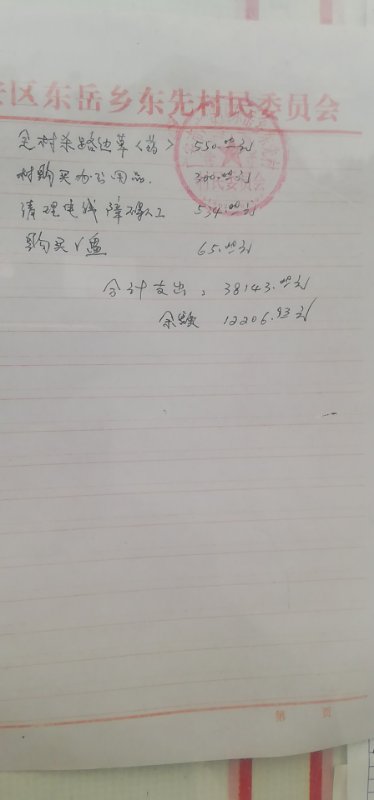 区东岳乡东先村民委员会
全村杀路边草(药) 550.00元
村购买办公用品. 300.00元
清理电线障碍人工 534.00元
购买U盘 65.00元
合计支出: 38143.00元
余额 12206.93元
村民委员会
第 页